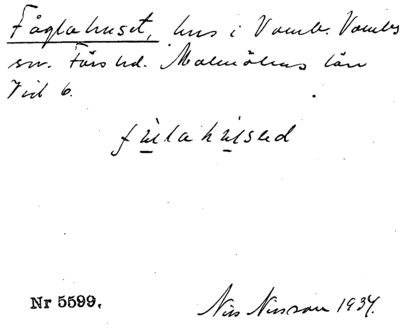 Fåglahuset, hus i Vomb. Vombs
sn. Färs hd. Malmöhus län
Vid 6.
fúlahúsed
Nr 5599.
Nils Nilsson 1937.